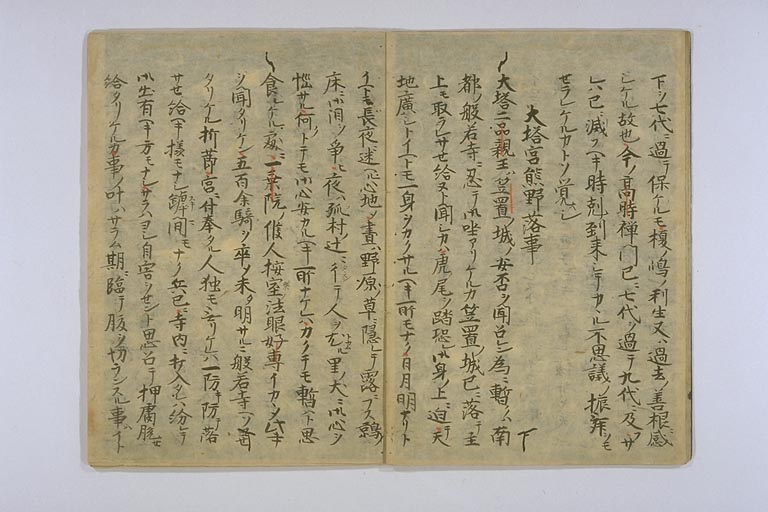 下ッ七代ニ過テ保ケルモ榎ノ嶋ノ利生又ハ過去ノ善根感
シケル故也今ノ高時禅門已ニ七代ヲ過テ九代ニ及ヘリサ
レハ已ニ滅フヘキ時剋到来シテカヽル不思議ノ振舞ヲモ
セラレケルカトソ覚シ
大塔宮熊野落事
下
大塔二品親王ハ笠置ノ城ノ安否ヲ聞召ン為ニ暫ク南
都ノ般若寺ニ忍テ御坐アリケルカ笠置ノ城已ニ落テ主
上モ取ラレサセ給ヌト聞シカハ虎ノ尾ヲ踏恐レ御身ノ上ニ迫テ天
地廣シトイヘトモ一身ヲカクサルヘキ所モナク日月明ナリト
イヘトモ長夜ニ迷ヘル心地シテ晝ハ野原ノ草ニ隠レテ露ニフス鶉ノ
床ニ御涙ヲ争ヒ夜ハ孤村ノ辻ニ行テ人ヲ尤ル里ノ犬ニ御心ヲ
悩サル何トテモ御心安カルヘキ所ナケレハカクテモ暫ハト思
食レケル處ニ一乗院ノ候人按察法眼好専イカヽシテ
聞タリケン五百余騎ヲ率シ未明ニ般若寺ヘソ寄
タリケル折節宮ニ付奉タル人独モ无リケレハ一防キ防テ落
サセ給ヘキ様モナシ其間モナク兵已ニ寺内ニ打入タレハ紛テ
御出有ヘキ方モナシサラハヨシ自害ヲセント思召テ押膚脱セ
給タリケルカ事ノ叶ハサラム期ニ臨テ腹ヲ切ランスル事ハイト